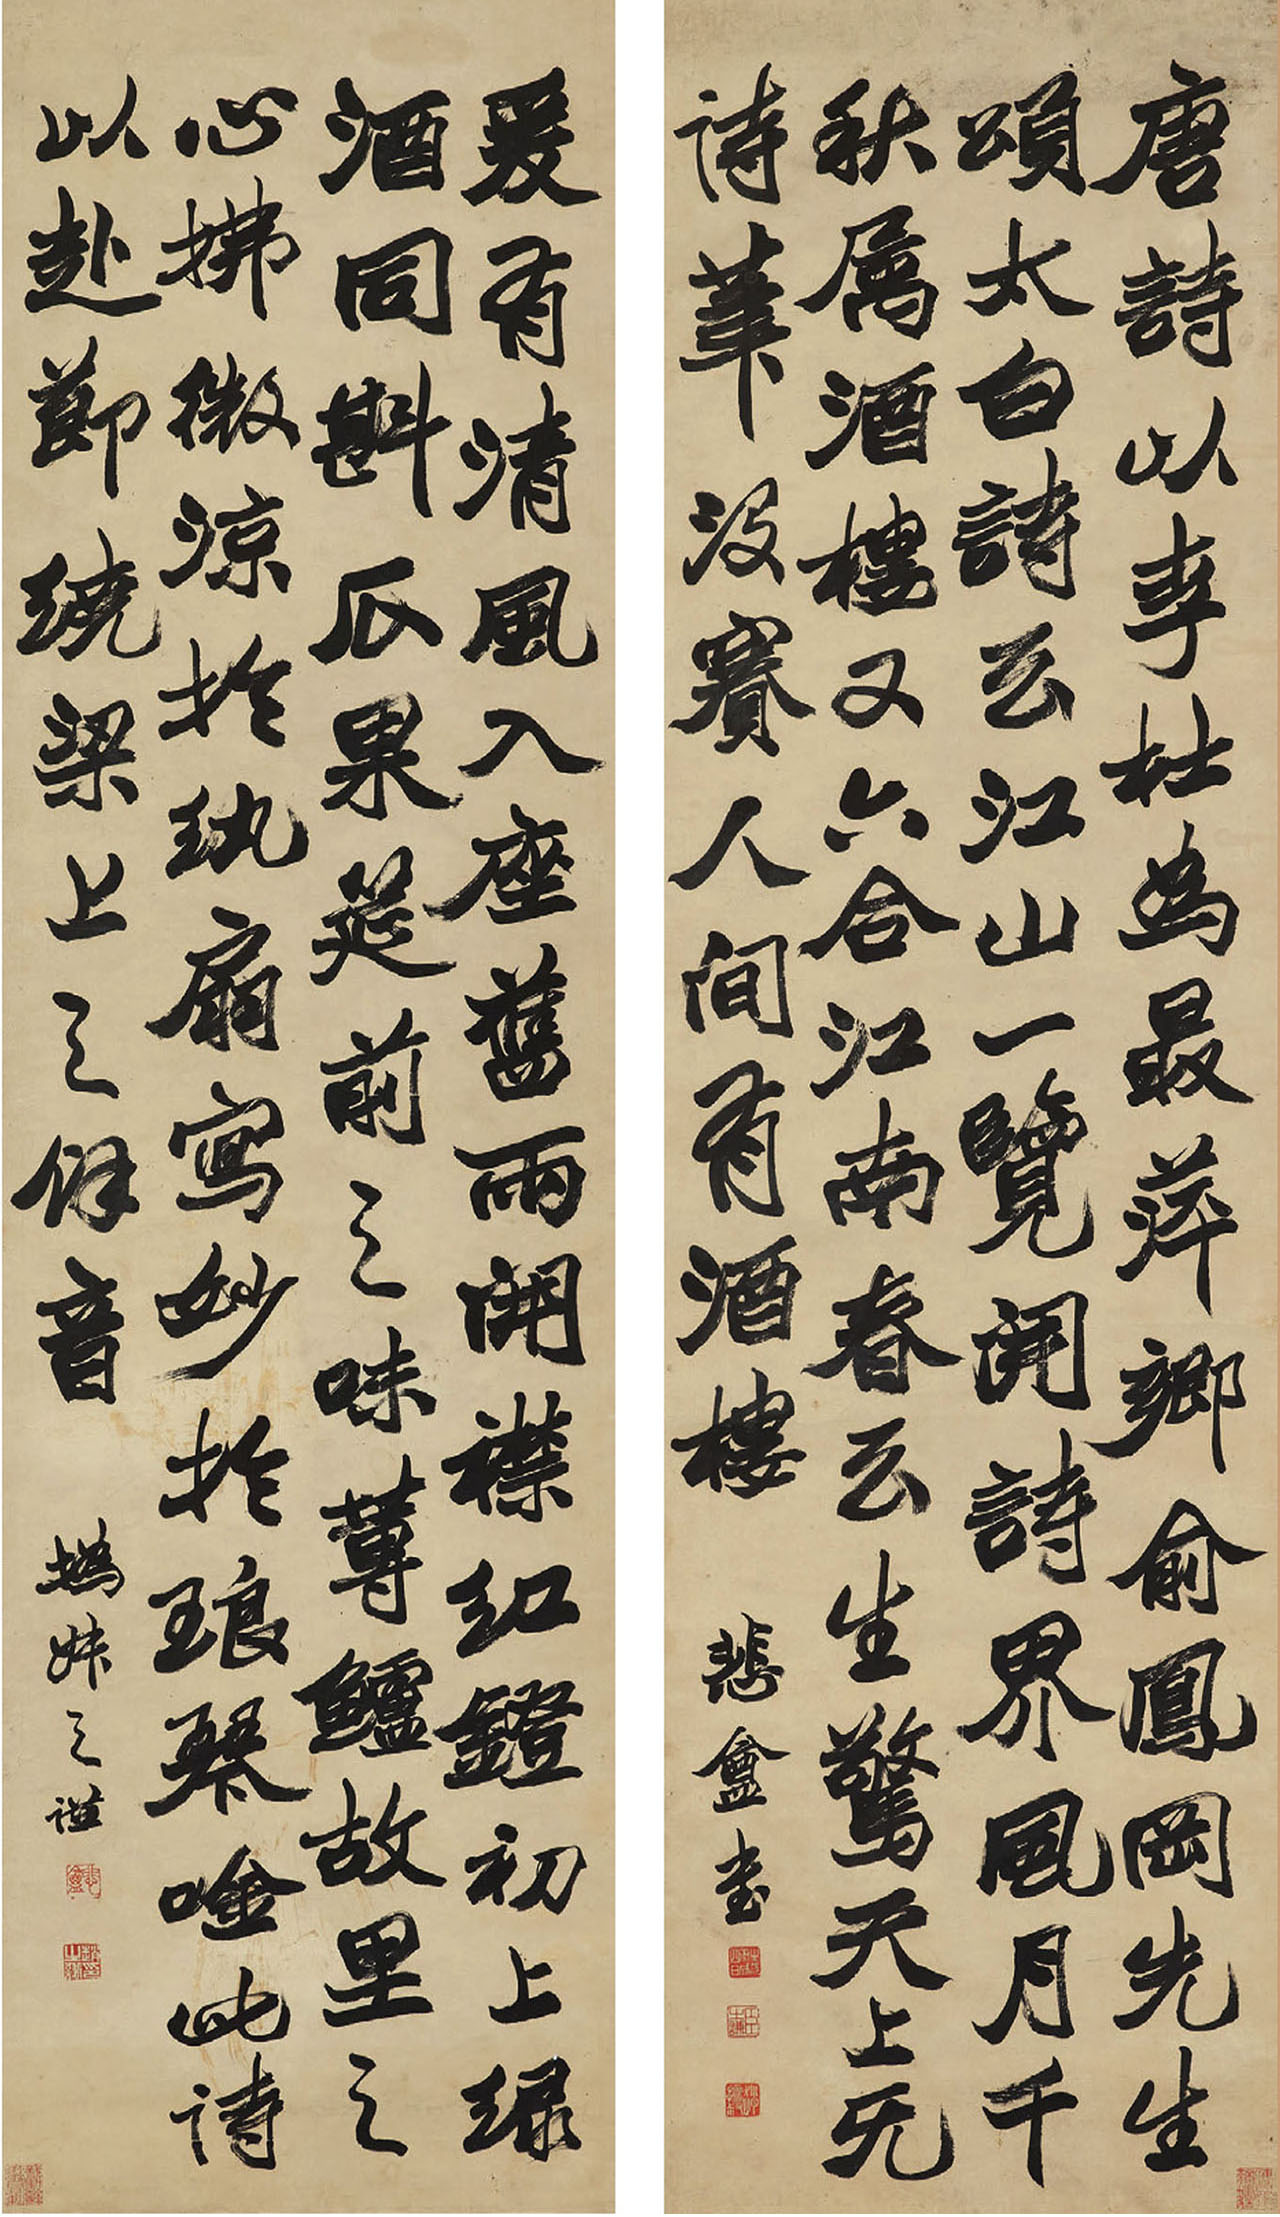 唐詩以李杜為最萍鄉俞鳳岡先生
頌太白詩云江山一覽開詩界風月千
秋屬酒樓又六合江南春云生驚天上无
诗筆没賽人間有酒樓
悲盦書
爰有清風入座舊雨開襟紅鐙初上緑
酒同斟瓜果筵前之味蓴鱸故里之
心拂微涼於紈扇寫妙於琅琴唫此诗
以赴節繞梁上之餘音
撝叔之謙